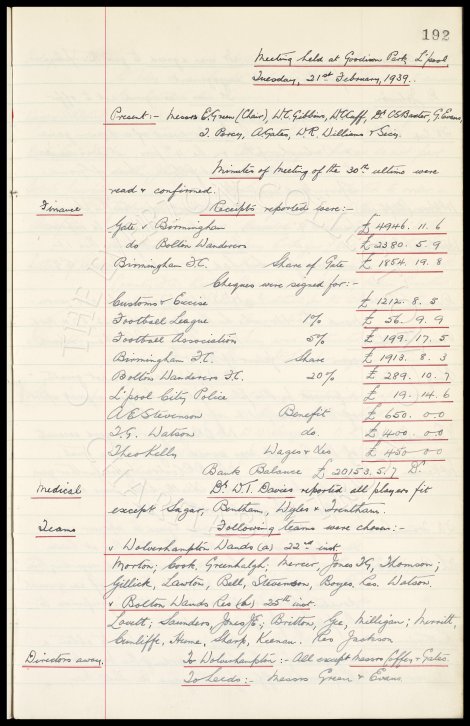 192
Meeting held at Goodison Park, L'pool,
Tuesday, 21st February, 1939.
Present:- Messrs E. Green (Chair), W.C. Gibbins, W.C. Cuff, Dr C.S. Baxter, G. Evans,
T. Percy, A. Gates, W.R. Williams & Secy.
Minutes of Meeting of the 30th ultimo were
read & confirmed.
Finance Receipts reported were:-
Gate v Birmingham £ 4946. 11. 6
do Bolton Wanderers £ 2380. 5. 9
Birmingham F.C. Share of Gate £ 1854. 19. 8
Cheques were signed for:-
Customs & Excise £ 1212. 8. 5
Football League 1% £ 56. 9. 9
Football Association 5% £ 199. 17. 5
Birmingham F.C. Share £ 1913. 8. 3
Bolton Wanderers F.C. 20% £ 289. 10. 7
L'pool City Police £ 19. 14. 6
A.E. Stevenson Benefit £ 650. 0. 0
T.G. Watson do. £ 400. 0. 0
Theo Kelly Wages &c £ 450 0 0
Bank Balance £ 20153. 5. 7 Dr.
Medical Dr. W.T. Davies reported all players fit
except Sagar, Bentham, Wyles & Trentham.
Teams Following teams were chosen:-
v Wolverhampton Wands (a) 22nd inst.
Morton; Cook, Greenhalgh; Mercer, Jones T.G, Thomson;
Gillick, Lawton, Bell, Stevenson, Boyes. Res. Watson.
v Bolton Wands Res 25th inst.
Lovett; Saunders, Jones J.E.; Britton, Gee, Milligan; Merritt,
Cunliffe, Hurne, Sharp, Keenan. Res Jackson
Directors away. To Wolverhampton:- All except Messrs Coffer & Gates.
To Leeds:- Messrs Green & Evans.